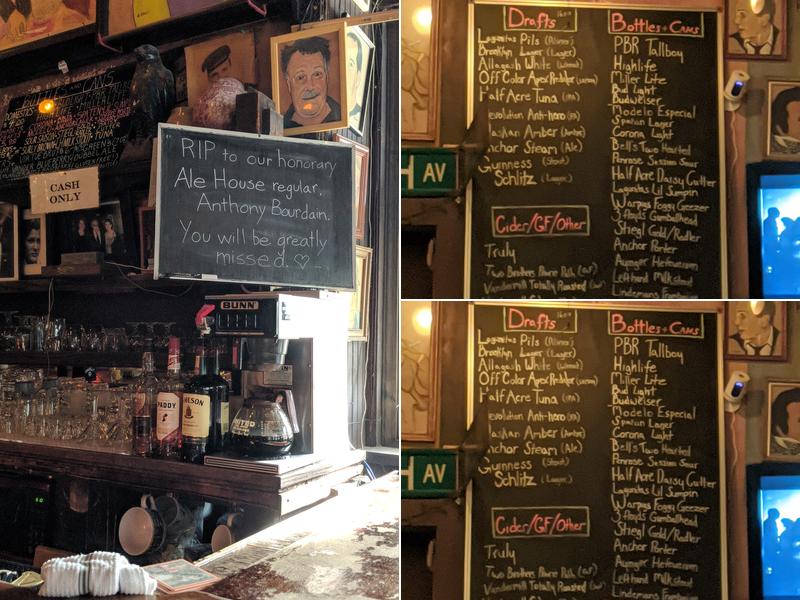 BOTTLES AND CANS
CASH
ONLY
RIP to our honorary
Ale House regular,
Anthony Bourdain.
You will be greatly
missed. ♡
BUNN
PADDY
Drafts 16oz
Lagunitas Pils (Pilsner)
Brooklyn Lager (Lager)
Allagash White (Wheat)
Off Color
Half Acre Tuna (IPA)
evolution Anti-hero (IPA)
laskan Amber (Amber)
nchor Steam (Ale)
Guinness (Stout)
Schlitz (Lager)
H AV
Cider/GF/Other
Truly
Two Brothers Prairie Path (GF)
Vandermill Totally Roasted
Bottles + Cans
PBR Tallboy
Highlife
Miller Lite
Bud Light
Budweiser
Modelo Especial
Spartan Lager
Corona Light
Bell's Two Hearted
Penrose Session Sour
Half Acre Daisy Cutter
Lagunitas Lil Sumpin
Warpigs Foggy Geezer
3 Floyds Gumballhead
Stiegl Gold/Radler
Anchor Porter
Ayinger Hefeweizen
Lefthand Milkstout
Lindemans Framboise
Drafts 16oz
Lagunitas Pils (Pilsner)
Brooklyn Lager (Lager)
Allagash White (Wheat)
Off Color
Half Acre Tuna (IPA)
evolution Anti-hero (IPA)
laskan Amber (Amber)
nchor Steam (Ale)
Guinness (Stout)
Schlitz (Lager)
H AV
Cider/GF/Other
Truly
Two Brothers Prairie Path (GF)
Vandermill Totally Roasted
Bottles + Cans
PBR Tallboy
Highlife
Miller Lite
Bud Light
Budweiser
Modelo Especial
Spartan Lager
Corona Light
Bell's Two Hearted
Penrose Session Sour
Half Acre Daisy Cutter
Lagunitas Lil Sumpin
Warpigs Foggy Geezer
3 Floyds Gumballhead
Stiegl Gold/Radler
Anchor Porter
Ayinger Hefeweizen
Lefthand Milkstout
Lindemans Framboise